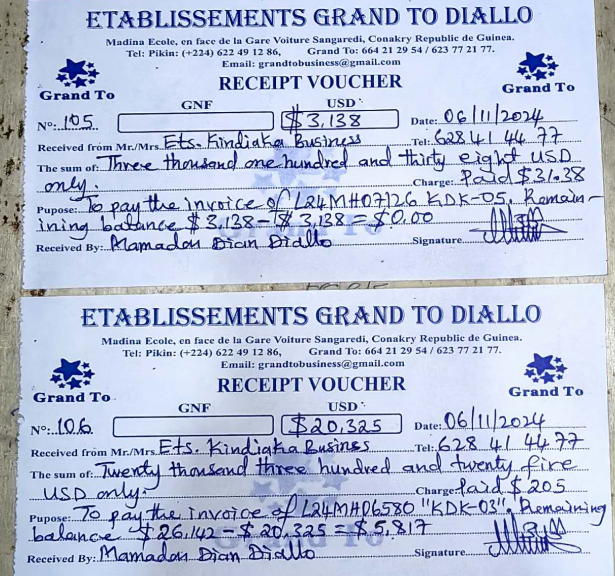 ETABLISSEMENTS GRAND TO DIALLO
Madina Ecole, en face de la Gare Voiture Sangaredi, Conakry Republic de Guinea.
Tel: Pikin: (+224) 622 49 12 86, Grand To: 664 21 29 54 / 623 77 21 77.
Email: grandtobusiness@gmail.com
Grand To RECEIPT VOUCHER Grand To
GNF USD
Nº: 105 $3,138 Date: 06/11/2024
Received from Mr./Mrs. Ets. Kindiaka Business Tel: 628 41 44 77
The sum of: Three thousand one hundred and thirty eight USD
only. Charge: Paid $31.38
Pupose: To pay the invoice of L24MH07126 KDK-05. Remain-
ining balance $3,138-$3,138=$0.00
Received By: Mamadou Dian Diallo Signature
ETABLISSEMENTS GRAND TO DIALLO
Madina Ecole, en face de la Gare Voiture Sangaredi, Conakry Republic de Guinea.
Tel: Pikin: (+224) 622 49 12 86, Grand To: 664 21 29 54 / 623 77 21 77.
Email: grandtobusiness@gmail.com
Grand To RECEIPT VOUCHER Grand To
GNF USD
Nº: 106 $20,325 Date: 06/11/2024
Received from Mr./Mrs. Ets. Kindiaka Businss Tel: 628 41 44 77
The sum of: Twenty thousand three hundred and twenty five
USD only. Charge: Paid $205
Pupose: To pay the invoice of L24MH06580 "KDK-03". Remaining
balance $26,142-$20,325=$5,817
Received By: Mamadou Dian Diallo Signature